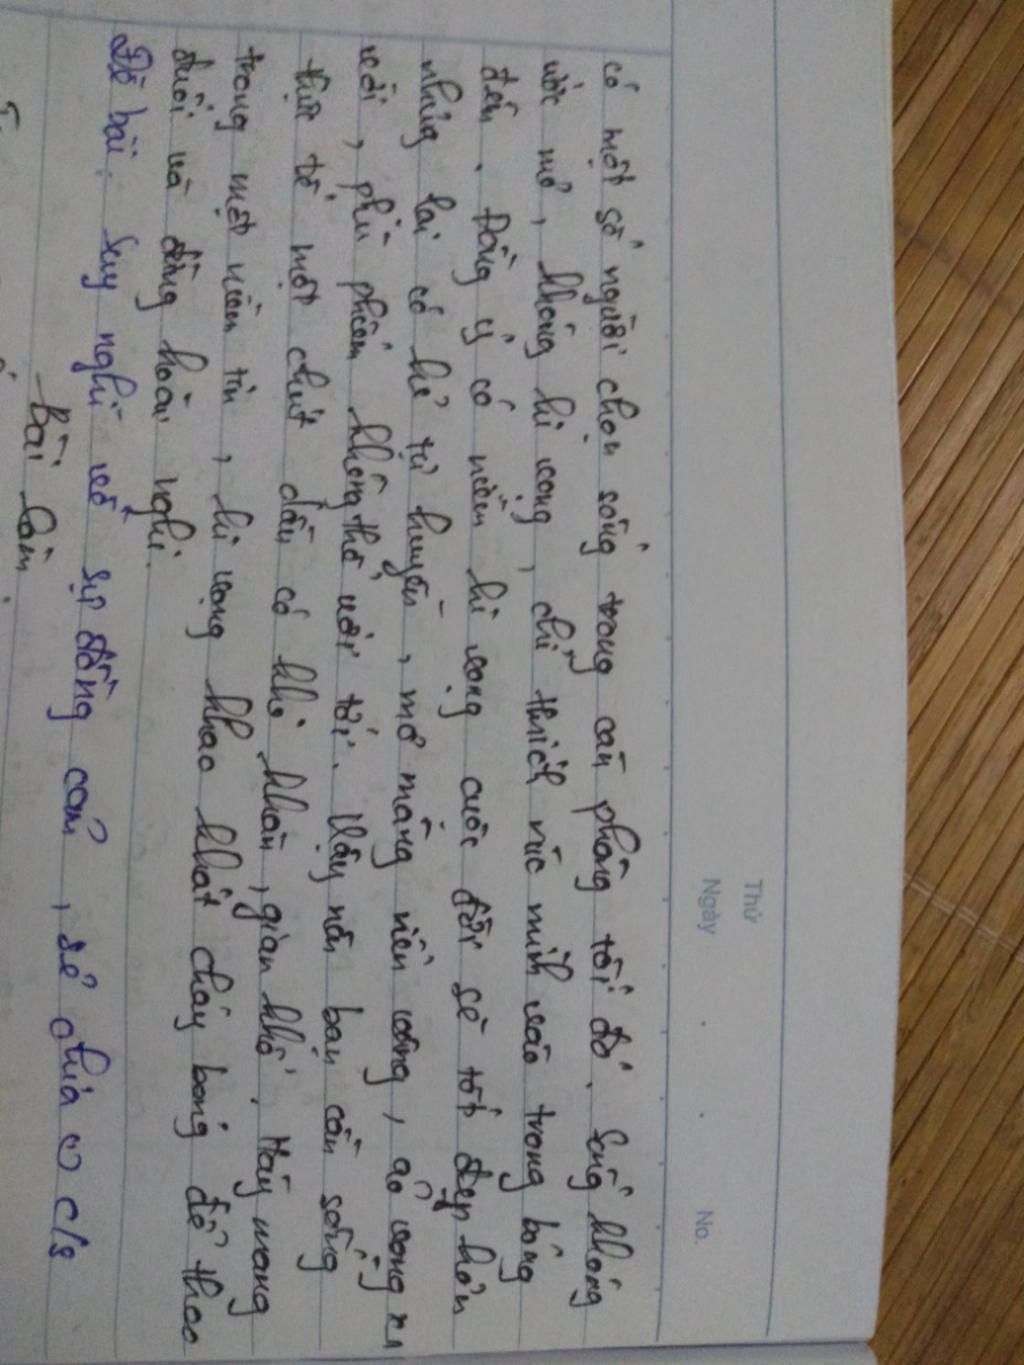 Thứ
Ngày . . No.
có một số người chọn sống trong căn phòng tối đó. Sống không
ước mơ, không hi vọng, chỉ thích rúc mình vào trong bóng
đêm. Đồng ý có niềm hi vọng cuộc đời sẽ tốt đẹp hơn
nhưng lại có kẻ tự huyễn, mơ màng viển vông, ảo vọng xa
vời, phù phiếm không thể với tới. Vậy nên bạn cần sống
thực tế một chút dẫu có khó khăn, gian khổ. Hãy mang
trong một niềm tin, hi vọng khao khát cháy bỏng để theo
đuổi và đừng hoài nghi.
Đề bài: suy nghĩ về sự đồng cảm, sẻ chia c/s
Bài làm